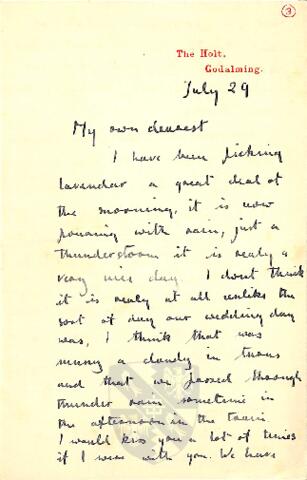 3
The Holt,
Godalming.
July 29
My own dearest
I have been picking
lavender a great deal of
the morning, it is now
pouring with rain, just a
thunderstorm it is really a
very nice day. I dont think
it is really at all unlike the
sort of day our wedding day
was, I think that was
sunny & cloudy in turns
and that we passed through
thunder rain sometime in
the afternoon in the train.
I would kiss you a lot of times
if I were with you. We have